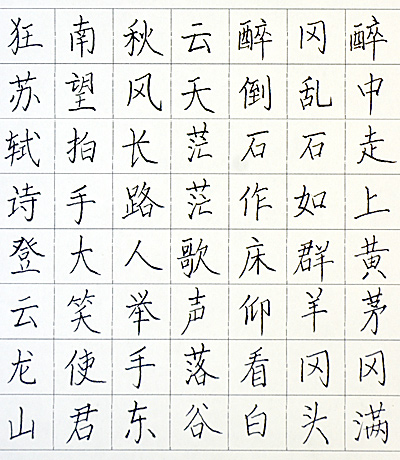 醉中走上黄茅冈满
冈乱石如群羊冈头
醉倒石作床仰看白
云天茫茫歌声落谷
秋风长路人举手东
南望拍手大笑使君
狂苏轼诗登云龙山